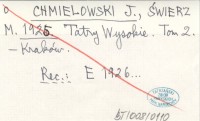 CHMIELOWSKI J., ŚWIERZ
M. 1925. Tatry Wysokie. Tom 2.
– Kraków.
Rec.: E 1926...
BT1008/0110